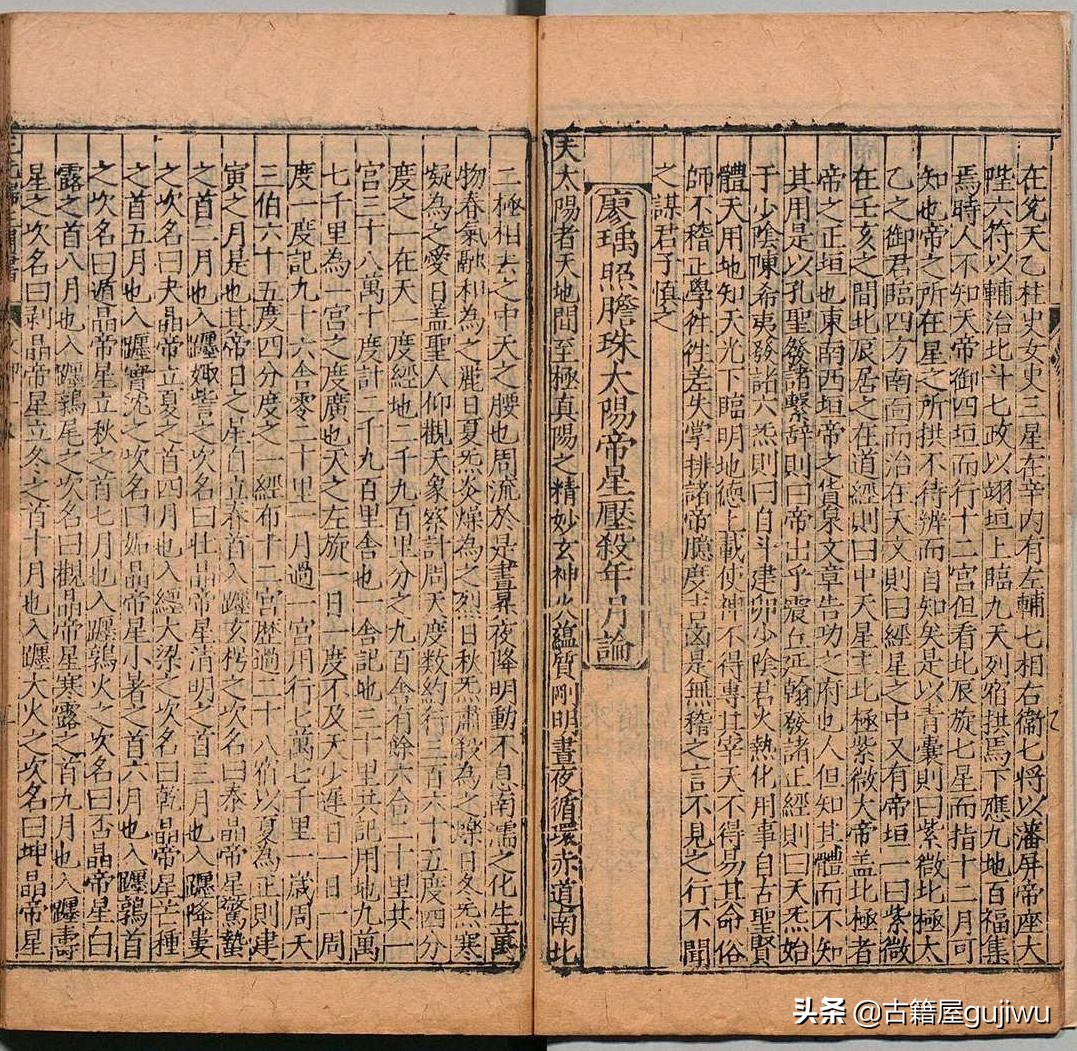 在兌天乙柱史女史三星在辛内有左輔七相右衞七将以藩屏帝座大
陛六符以輔治北斗七政以翊垣上臨九天列宿拱焉下應九地百福集
焉時人不知天帝御四垣而行十二宫但看北辰旋七星而指十二月可
知也帝之所在星之所拱不待辨而自知矣是以青囊則曰紫微北極太
乙之御君臨四方南面而治在天文則曰經星之中又有帝垣一曰紫微
在壬亥之間北辰居之在道經則曰中天星主北極紫微大帝盖北極者
帝之正垣也東南西垣帝之貨泉文章告功之府也人但知其體而不知
其用是以孔聖發諸繫辞則曰帝出乎震丘延翰發諸正經則曰天炁始
于少陰陳希夷發諸六炁則曰自斗建卯少陰君火熱化用事自古聖賢
體天用地知天光下臨明地德上載使神不得專其宰天不得易其命俗
師不稽正學徃徃差失掌排諸帝臆度吉凶是無稽之言不見之行不聞
之謀君子慎之
廖瑀照膽珠太陽帝星壓殺年月論
夫太陽者天地間至極真陽之精妙玄神火蘊質剛明晝夜循環赤道南北
二極相去之中天之腰也周流於是晝昇夜降明動不息南濡之化生萬
物春氣融和為之麗日夏炁炎燥為之烈日秋炁肅殺為之爍日冬炁寒
凝為之愛日盖聖人仰觀天象察計周天度数約行三百六十五度四分
度之一在天一度經地二千九百里分之九百舍有餘六合二十里共一
宫三十八萬十度計二千九百里舍也一舍記也三十里共記用地九萬
七千里為一宫之度廣也天之左旋一日一度不及天少遲日一日一周
度一度記九十六舍零二十里一月過一宫用行七萬七千里一歲周天
三伯六十五度四分度之一經布十二宫歴過二十八宿以夏為正則建
寅之月是也其帝日之星自立春首入躔玄枵之次名曰泰晶帝星驚蟄
之首二月也入躔娵訾之次名曰壮晶帝星清明之首三月也入躔降婁
之次名曰夬晶帝立夏之首四月也入經大梁之次名曰乾晶帝星芒種
之首五月也入躔實沈之次名曰姤晶帝星小暑之首六月也入躔鶉首
之次名曰遁晶帝星立秋之首七月也入躔鶉火之次名曰否晶帝星白
露之首八月也入躔鶉尾之次名曰觀晶帝星寒露之首九月也入躔壽
星之次名曰剥晶帝星立冬之首十月也入躔大火之次名曰坤晶帝星
头条 @古籍屋gujiwu